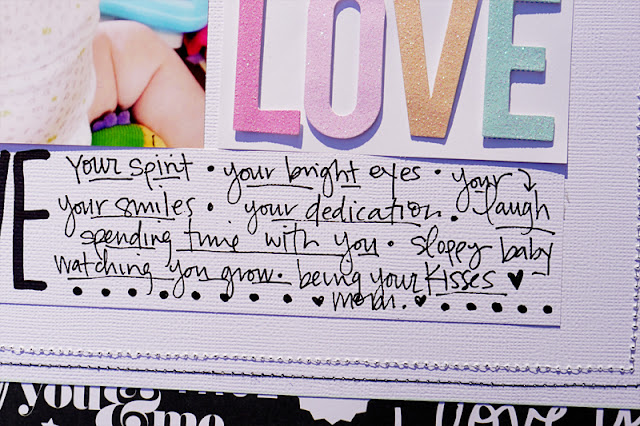 LOVE
VE
your spirit • your bright eyes • your
your smiles • your dedication. laugh
spending time with you • sloppy baby
watching you grow. being your kisses ♥
♥ mom. ♥
you &
& me
love